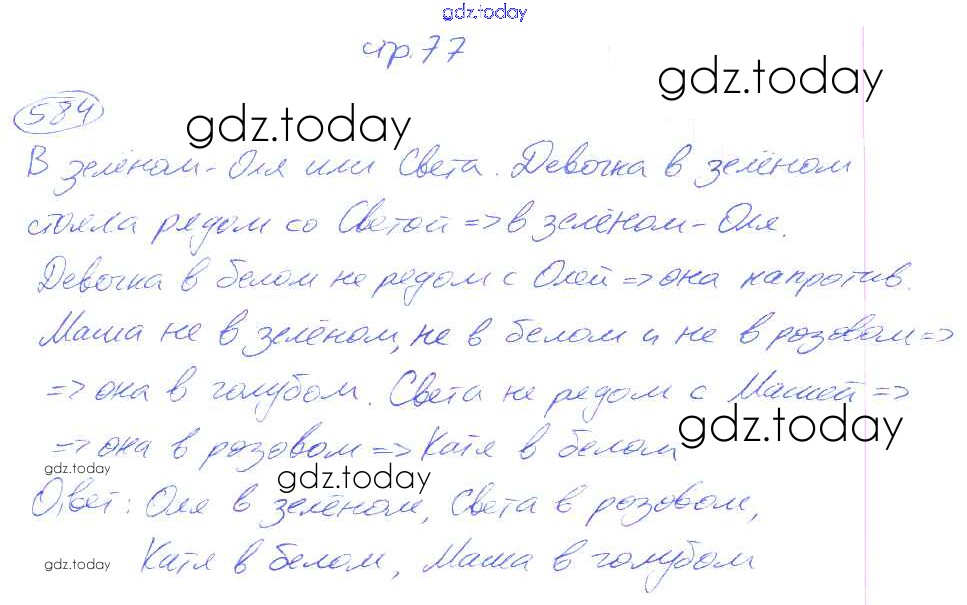 gdz.today
стр. 77
gdz.today
584
gdz.today
В зелёном - Оля или Света. Девочка в зелёном
стояла рядом со Светой => в зелёном - Оля.
Девочка в белом не рядом с Олей => она напротив.
Маша не в зелёном, не в белом и не в розовом =>
=> она в голубом. Света не рядом с Машей =>
gdz.today
=> она в розовом => Катя в белом
gdz.today
gdz.today
Ответ: Оля в зелёном, Света в розовом,
Катя в белом, Маша в голубом
gdz.today